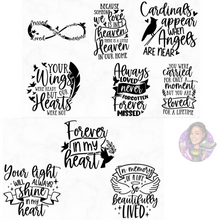 BECAUSE
SOMEONE
we love
IS IN
HEAVEN
THERE IS A LITTLE
HEAVEN
IN OUR HOME
Cardinals
APPEAR
WHEN
Angels
ARE NEAR
YOUR
Wings
WERE READY
BUT OUR
Hearts
WERE NOT
Always
LOVED
never
FORGOTTEN
FOREVER
MISSED
YOU WERE
CARRIED
FOR ONLY A
MOMENT
BUT YOU ARE
loved
FOR A LIFETIME
Forever
in my
heart
Your light
WILL ALWAYS
shine
in my
heart
IN MEMORY
OF A LIFE
SO
Beautifully
LIVED